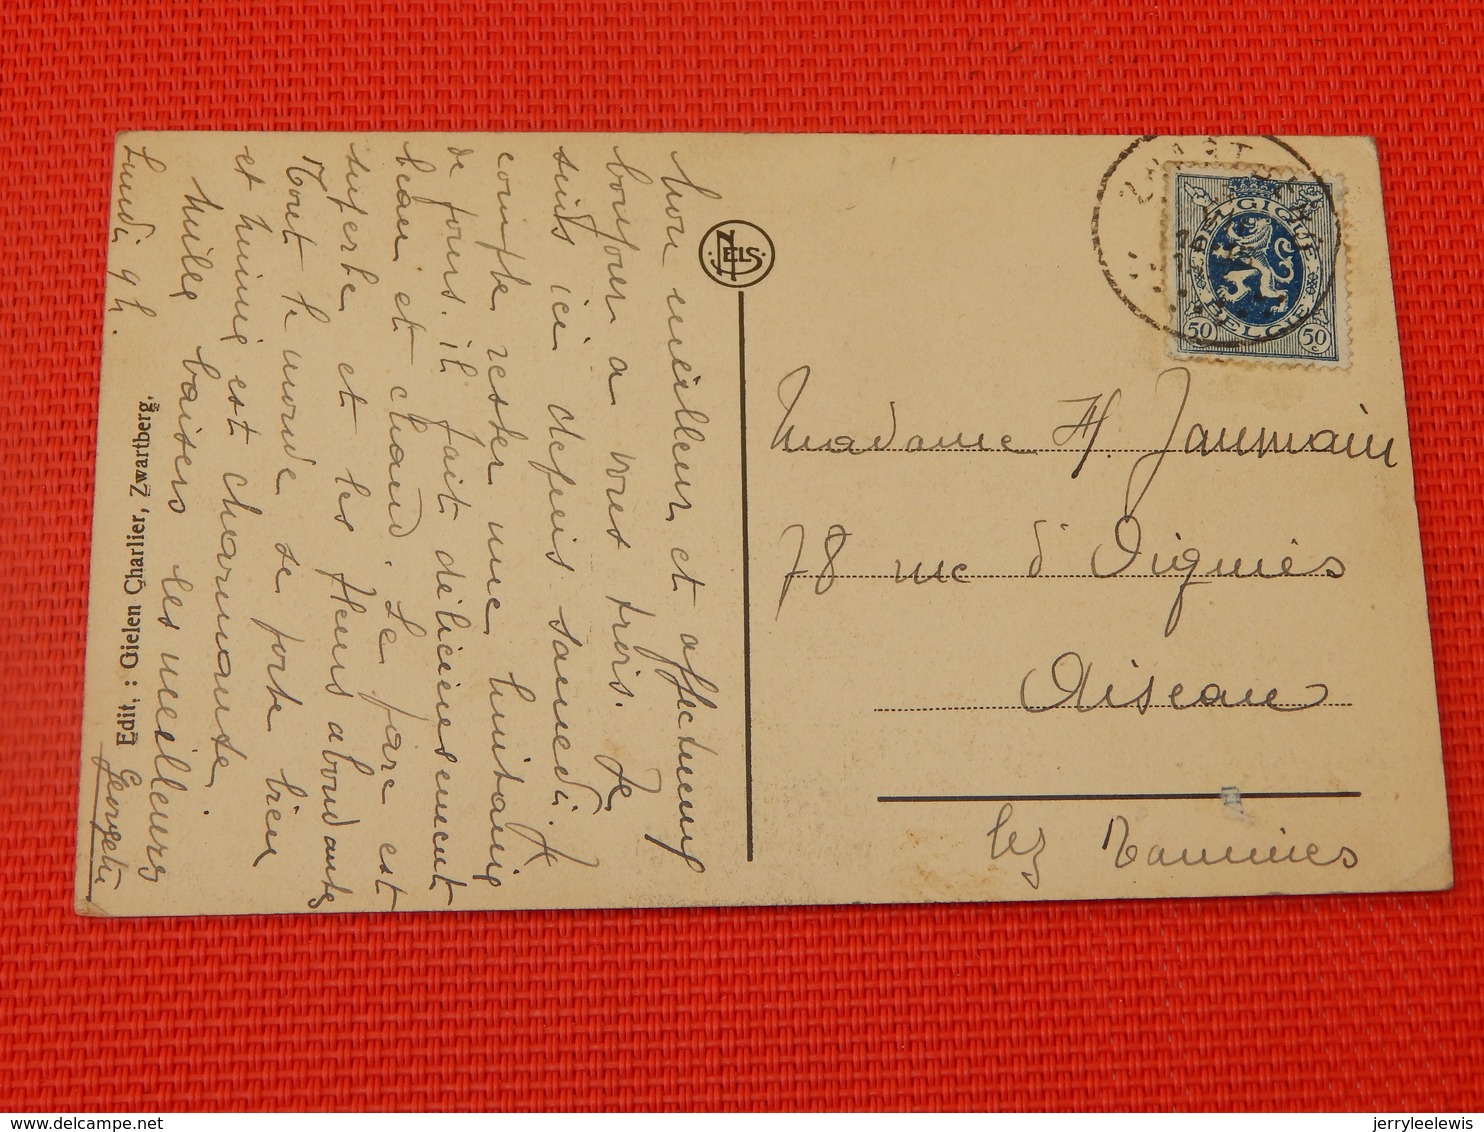 Mon meilleur et affectueux
bonjour a vous trois. Je
suis ici depuis samedi. Je
compte rester une huitaine
de jours. il fait délicieusement
beau et chaud. Le parc est
superbe et les fleurs abondantes
Tout le monde se porte bien
et Mimie est charmante
Mille baisers les meilleurs
Lundi 9 h.
Georgette
Edit. : Gielen Charlier, Zwartberg.
NELS
ZWARTBERG
BELGIQUE
BELGIË
50 50
c
Madame H. Jaumain
78 rue d'Oignies
Aiseau
lez Tamines
delcampe.net
jerryleelewis